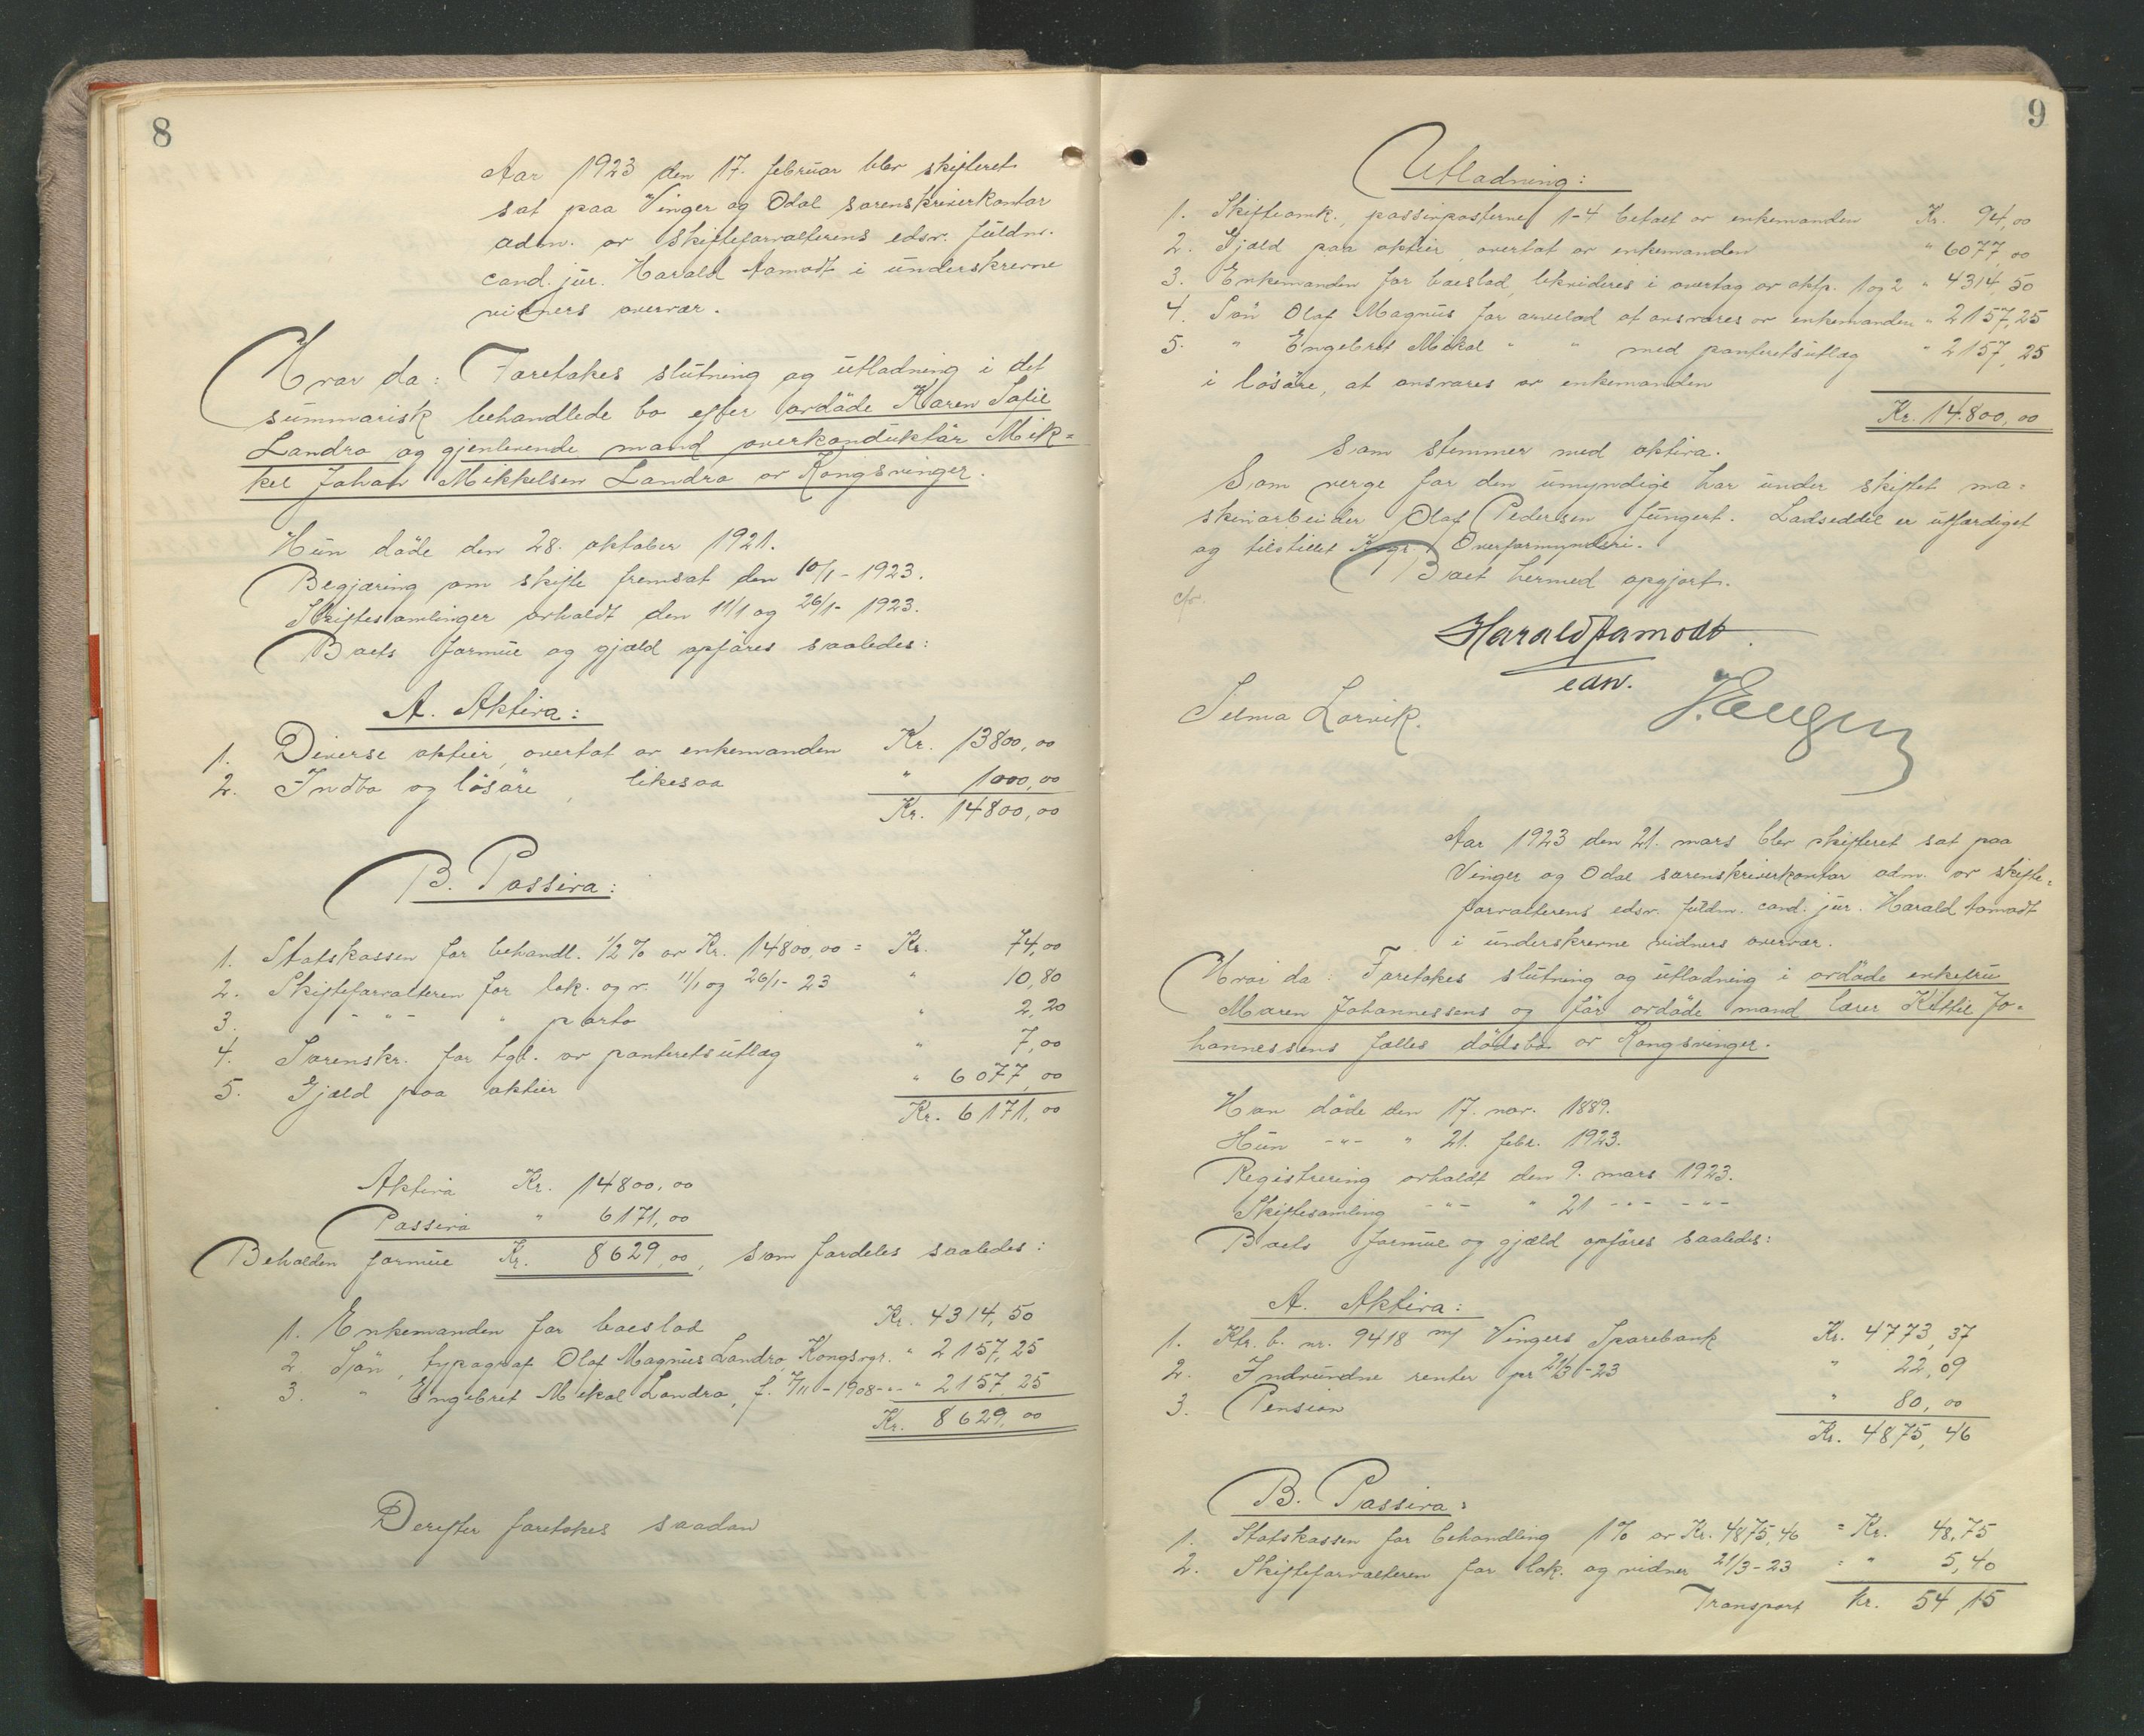 8
Aar 1923 den 17. februar blev skifteret
sat paa Vinger og Odal sorenskriverkontor
adm. av skifteforvalterens edsv. fuldm.
cand. jur. Harald Aamodt i underskrevne
vidners overvær.
Hvor da: Foretokes slutning og utlodning i det
summarisk behandlede bo efter avdöde Karen Sofie
Landro og gjenlevende mand overkonduktör Mik=
kel Johan Mikkelsen Landro av Kongsvinger.
Hun döde den 28. oktober 1921.
Begjæring om skifte fremsat den 10/1 - 1923.
Skiftesamlinger avholdt den 11/1 og 26/1 - 1923.
Boets formue og gjæld opföres saaledes:
A. Aktiva:
1. Diverse aktier, overtat av enkemanden Kr. 13800,00
2. Indbo og lösöre, likesaa " 1000,00
Kr. 14800,00
B. Passiva:
1. Statskassen for behandl. 1/2 % av Kr. 14800,00 = Kr. 74,00
2. Skifteforvalteren for lok. og v. 11/1 og 26/1 - 23 " 10,80
3. - " - " porto " 2,20
4. Sorenskr. for tgl. av panteretsutlæg " 7,00
5. Gjæld paa aktier " 6077,00
Kr. 6171,00
Aktiva Kr. 14800,00
Passiva " 6171,00
Beholden formue Kr. 8629,00, som fordeles saaledes:
1. Enkemanden for boeslod Kr. 4314,50
2. Sön, typograf Olaf Magnus Landro, Kongsvgr. " 2157,25
3. " Engebret Mikal Landro, f. 7/11 - 1908 - " - " 2157,25
Kr. 8629,00
Derefter foretokes saadan
9
Utlodning:
1. Skifteomk., passivposterne 1-4 betalt av enkemanden Kr. 94,00
2. Gjæld paa aktier, overtat av enkemanden " 6077,00
3. Enkemanden for boeslod, likvideres i overtag av aktp. 1 og 2 " 4314,50
4. Sön Olaf Magnus for arvelod at ansvares av enkemanden " 2157,25
5. " Engebret Mikal " " med panteretsutlæg " 2157,25
i lösöre, at ansvares av enkemanden
Kr. 14.800,00
Som stemmer med aktiva.
Som verge for den umyndige har under skiftet ma=
skinarbeider Olaf Pedersen fungert. Lodseddel er utfærdiget
og tilstillet Kgvgr. Overformynderi.
Boet hermed opgjort.
cfr.
Harald Aamodt.
edsv.
Selma Lorvik.
Aar 1923 den 21. mars blev skifteret sat paa
Vinger og Odal sorenskriverkontor adm. av skifte=
forvalterens edsv. fuldm. cand. jur. Harald Aamodt
i underskrevne vidners overvær.
Hvor da: Foretokes slutning og utlodning i avdöde enkefru
Maren Johannessens og för avdöde mand lærer Kittil Jo=
hannessens fælles dödsbo av Kongsvinger.
Han döde den 17. nov. 1889.
Hun - " - " 21. febr. 1923.
Registrering avholdt den 9. mars 1923.
Skiftesamling - " - " 21 - " - - " -
Boets formue og gjæld opföres saaledes:
A. Aktiva:
1. Ktr. b. nr. 9418 m/ Vingers Sparebank Kr. 4773,37
2. Indvundne renter pr 21/3 - 23 " 22,09
3. Pension " 80,00
Kr. 4875,46
B. Passiva:
1. Statskassen for behandling 1% av Kr. 4875,46 = Kr. 48,75
2. Skifteforvalteren for lok. og vidner 21/3 - 23 : " 5,40
Transport Kr. 54,15